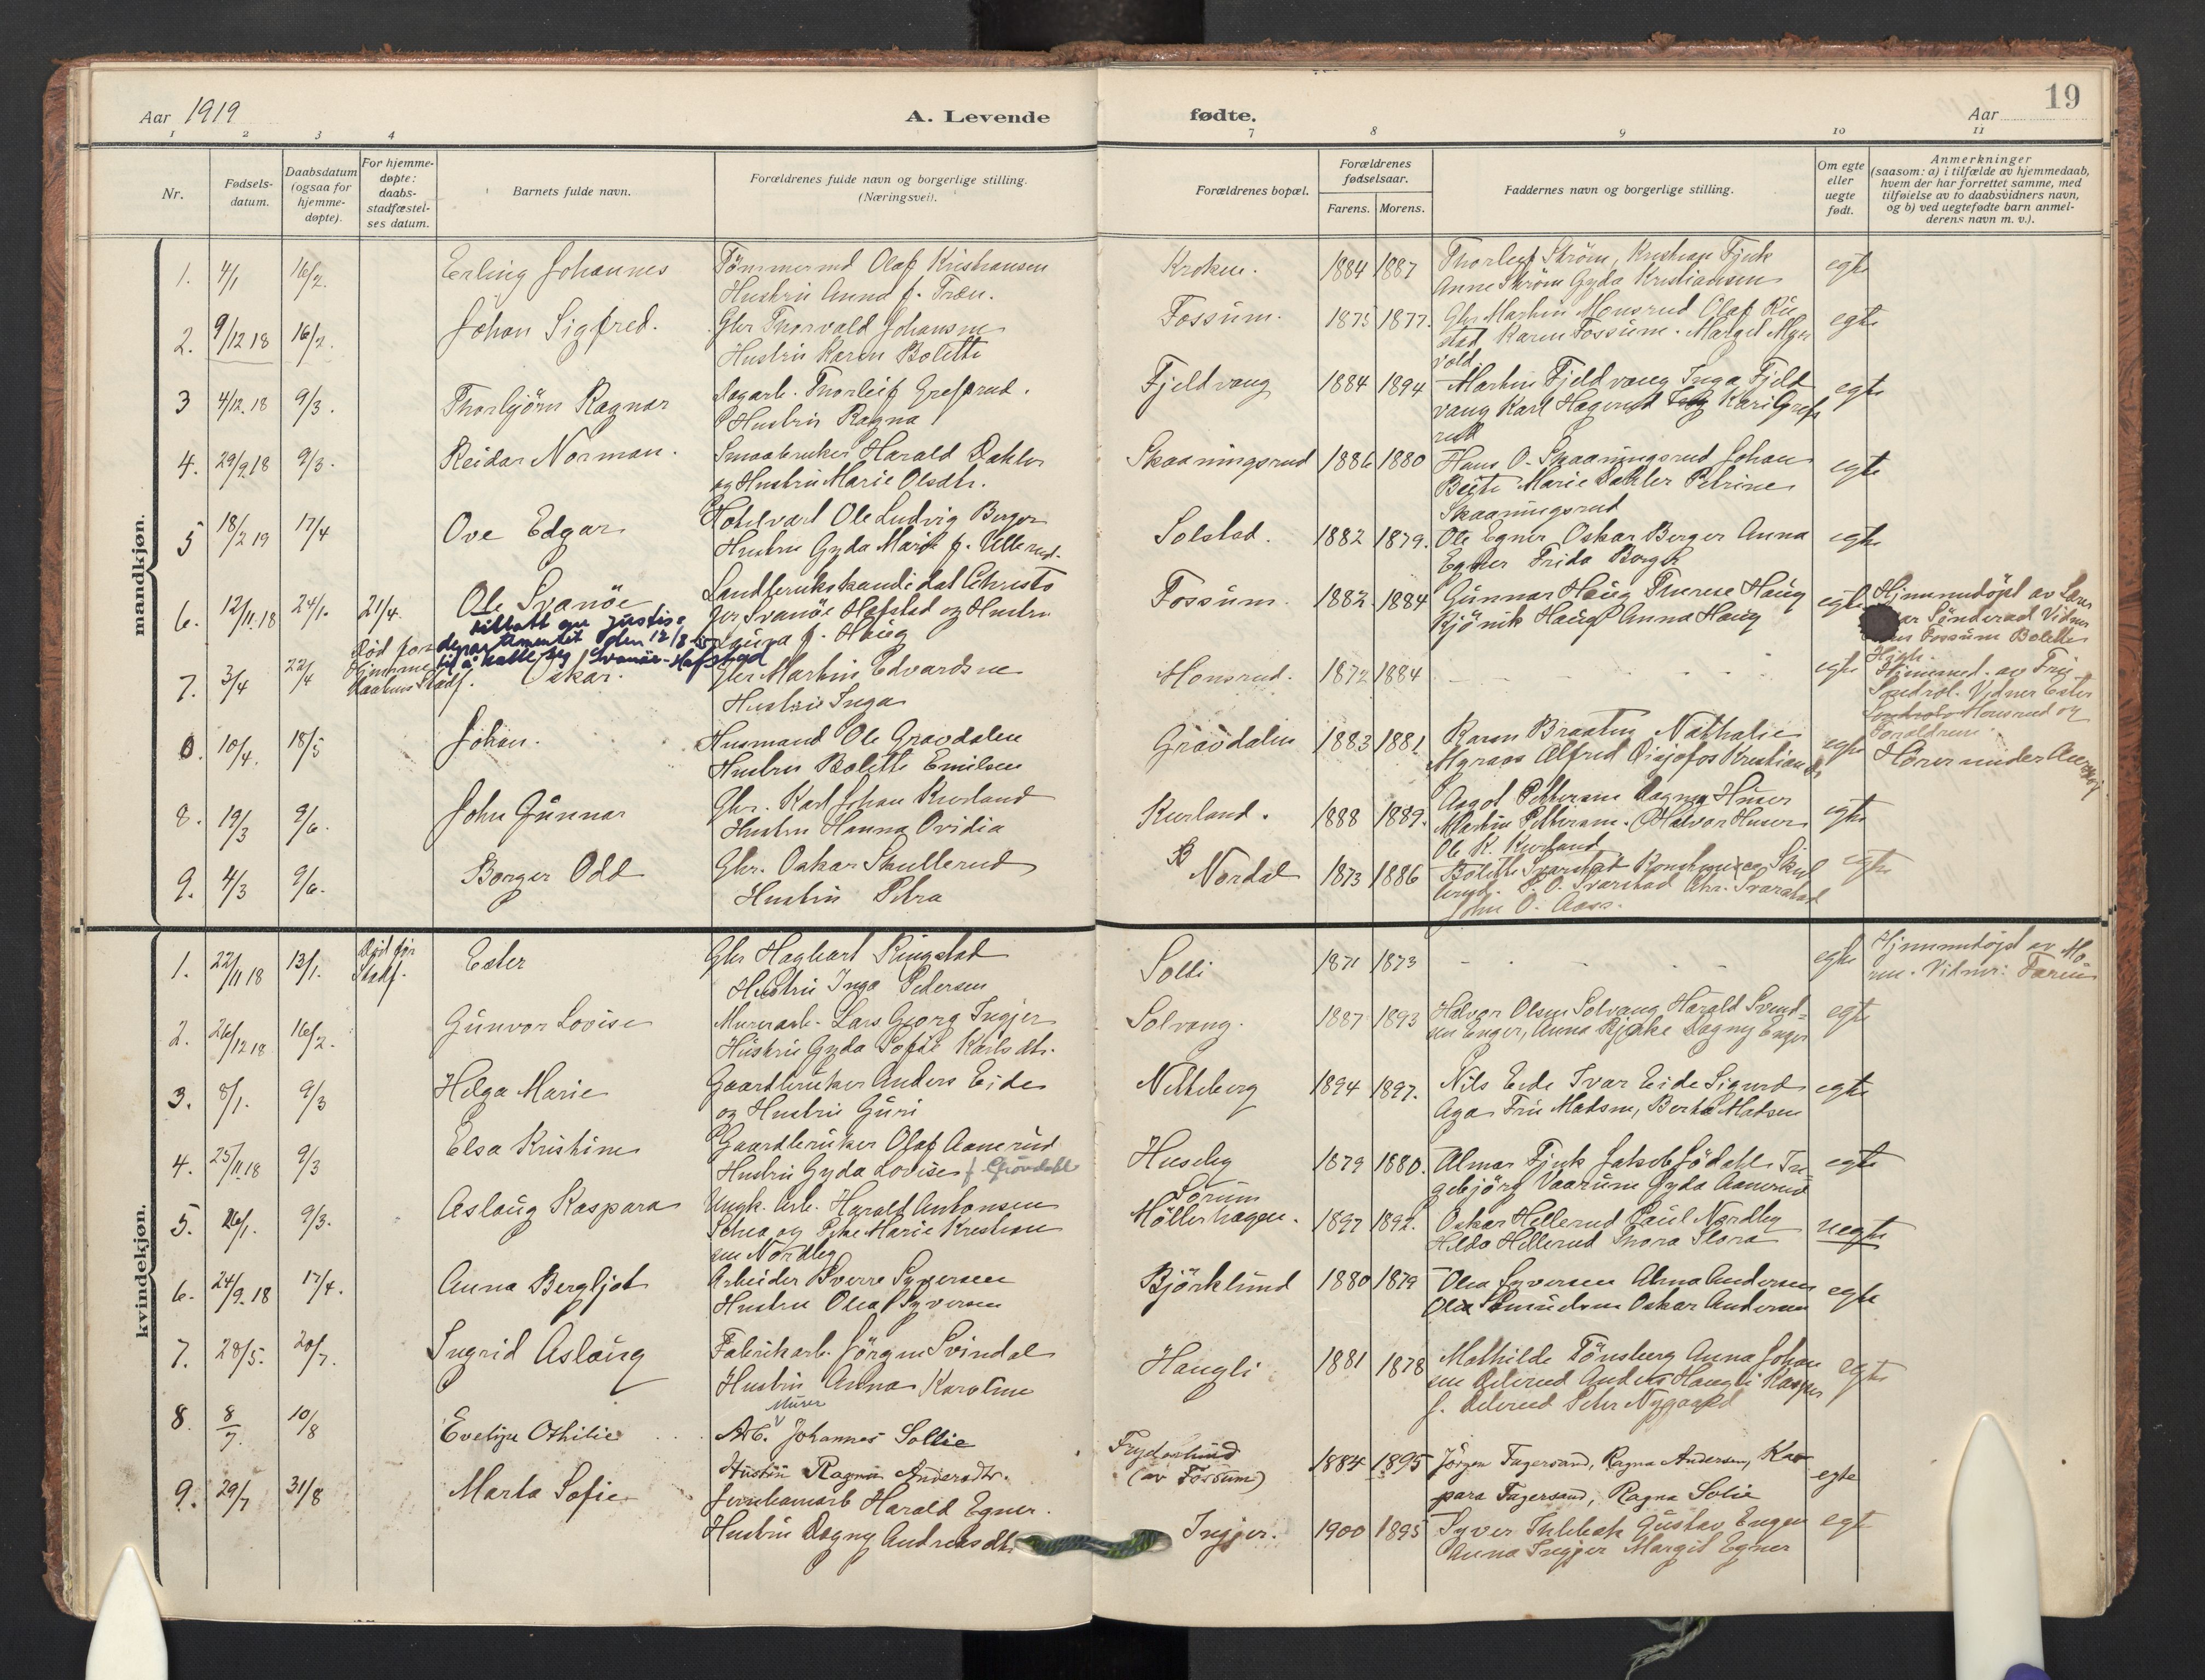 Aar 1919
A. Levende
fødte.
Aar
19
1 2 3 4 7 8 9 10 11
Nr.
Fødsels-
datum.
Daabsdatum
(ogsaa for
hjemme-
døpte).
For hjemme-
døpte:
daabs-
stadfæstel-
ses datum.
Barnets fulde navn.
Forældrenes fulde navn og borgerlige stilling.
(Næringsvei).
Forældrenes bopæl.
Forældrenes
fødselsaar.
Farens. Morens.
Faddernes navn og borgerlige stilling.
Om egte
eller
uegte
født.
Anmerkninger
(saasom: a) i tilfælde av hjemmedaab,
hvem der har forrettet samme, med
tilføielse av to daabsvidners navn,
og b) ved uegtefødte barn anmel-
derens navn m. v.).
mandkjøn.
1. 4/1 16/2. Erling Johannes
Tömmermd Olaf Kristiansen
Hustru Anna f. Træn.
Kroken. 1884 1887
Thorleif Strøm, Kristian Fjuk
Anne Strøm Gyda Kristiansen
egte
2. 9/12 18 16/2. Johan Sigfred.
Gbr Thorvald Johansen
Hustru Karen Bolette
Fossum. 1875 1877.
Gbr Martin Monsrud Olaf
stad Karen Fossum. Margit
vold.
egte
3 4/12.18 9/3. Thorbjörn Ragnar
Dagarb. Thorleif Grefsrud.
Hustru Ragna
Fjeldvang 1884 1894
Martin Fjeldvang Inga Fjeld
vang Karl Hagerud Kari Grefs
rud
egte
4. 29/9.18 9/3. Reidar Norman.
Smaabruker Harald Dahler
og Hustru Marie Olsdtr.
Skaaningsrud 1886 1880
Hans O. Skaaningsrud Johan
Marie Dahler Petrine
Skaaningsrud
egte
5 18/2 19 17/4 Ove Edgar
Hotelvært Ole Ludvig Berger
Hustru Gyda Marie f. Ullerud.
Solstad. 1882 1879.
Ole Egner Oskar Berger Anna
Egner Frida Borger
egte
6. 12/11.18 24/1. 21/4. Ole Svanöe
tillatt av Justis-
departementet den 12/8-
til å kalle seg Svanöe-Hafstad
Landbrukskandidat Christo
fer Svanöe Hafstad og Hustru
Laura f. Haug
Fossum. 1882. 1884
Gunnar Haug Therese Haug
Kjönik Haug Anna Haug
egte
Hjemmedöpt av
Sönderud Vidner
Fossum Bolette
Haug.
7. 3/4 22/4
Död for
Hjemme
daabens Stadf. Oskar.
Gbr Martin Edvardsen
Hustru Inga
Monsrud. 1872 1884
egte
Hjemmed. av Frk.
Vidner Ester
Monsrud og
Forældrene.
0. 10/4. 18/5 Johan.
Husmand Ole Gravdalen
Hustru Bolette Emilsen
Gravdalen 1883 1881
Karen Braaten Nathalie
Myraas Alfred Kristian
egte
Hörer under Aurskog
8. 19/3 9/6. John Gunnar
Gbr. Karl Johan Kurland
Hustru Hanna Ovidia
Kurland. 1888 1889.
Aagot Pettersen Dagny Huser
Martin Pettersen. Halvor Huser
Ole K. Kurland
egte
9. 4/3 9/6. Borger Odd
Gbr. Oskar Skullerud
Hustru Petra
Nordal 1873 1886
Bolette Svarstad Skul
lerud. P. O. Svarstad Chr. Svarstad
John O. Aas.
egte
kvindekjøn.
1. 22/11 18 13/1.
Död før
Stadf.
Ester
Gbr Hagbart Ringstad
Hustru Inga Pedersen
Solli 1871 1873
egte
Hjemmedöpt av Mo-
ren. Vidner: Faren
2. 26/12 18 16/2. Gunvor Lovise
Murerarb. Lars Georg Ingjer
Hustru Gyda Sofie Karlsdtr.
Solvang. 1887 1893
Halvor Olsen Solvang Harald Svend-
sen Enger, Anna Bjerke Dagny Enger
egte
3. 8/1. 9/3 Helga Marie
Gaardbruker Anders Eide
og Hustru Guri
Nitteberg 1894 1897.
Nils Eide Ivar Eide Sigurd
Aga Fru Madsen, Berta Madsen
egte
4. 25/11.18 9/3 Elsa Kristine
Gaardbruker Olaf Aanerud
Hustru Gyda Lovise f. Grövdahl
Huseby 1879 1880.
Almar Fjuk Jakob Södahl In-
gebjörg Vaarum Gyda Aanerud
egte
5. 26/1. 9/3. Aslaug Kaspara
Ungk. Arb. Harald Antonsen
og Pike Marie Kristian
sen Nordby
Sörum
Möllerhagen. 1897 1892.
Oskar Hellerud Paul Nordby
Hilda Hellerud Thora Slora
uegte
6. 24/9.18 17/4. Anna Bergljot
Arbeider Sverre Syversen
Hustru Olea Syversen
Björklund 1880 1879
Olea Syversen Alma Andersen
Oskar Andersen
egte
7. 28/5. 20/7. Ingrid Aslaug
Fabrikarb. Jörgen Svindal
Hustru Anna Karoline
Haugli 1881 1878
Mathilde Tönsberg Anna Johan
sen Anders Haugli Kasper
J. Peter Nygaard
egte
8. 8/7. 10/8 Evelyn Othilie
Murer
Arb. Johannes Sollie
Hustru Ragna Andersdtr.
Frydeslund
(av Fossum) 1884 1895
Jörgen Fagersand, Ragna Andersen, Kas-
para Fagersand, Ragna Solie
egte
9. 29/7 31/8 Marta Sofie
Jernbanearb Harald Egner.
Hustru Dagny Andreasdtr
Ingjer. 1900 1895
Syver Gustav Engen
Anna Ingjer Margit Egner
egte